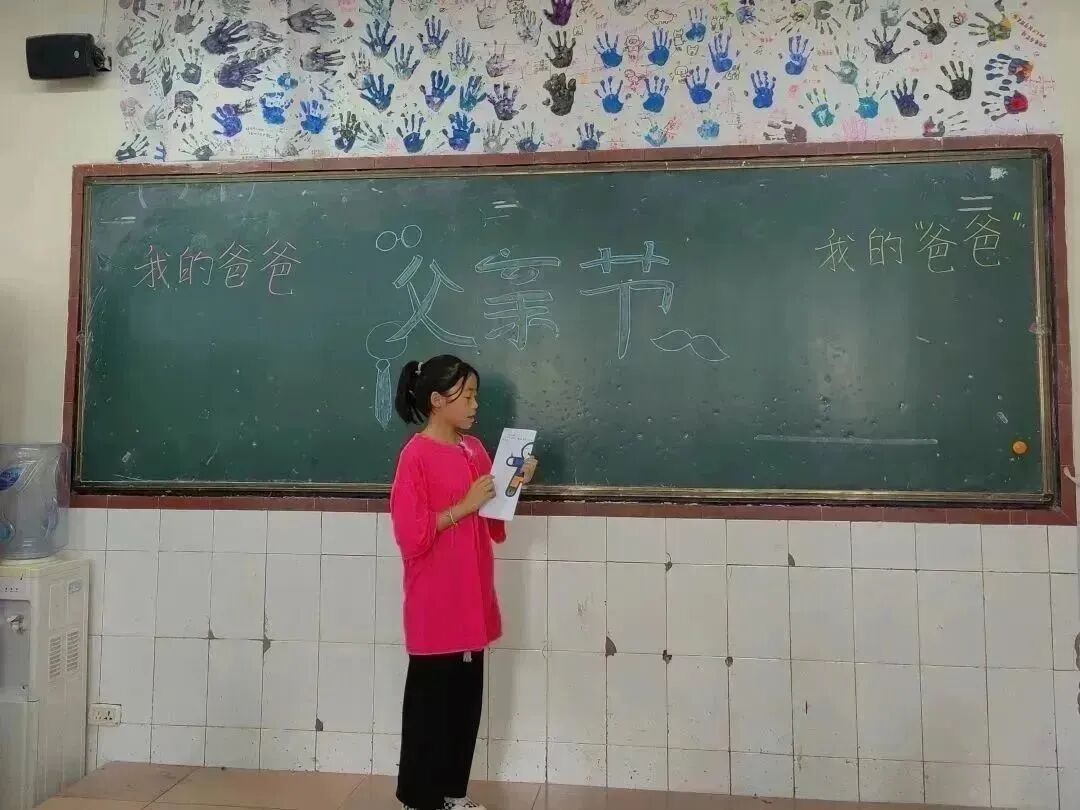 我的爸爸
父亲节
我的"爸爸"